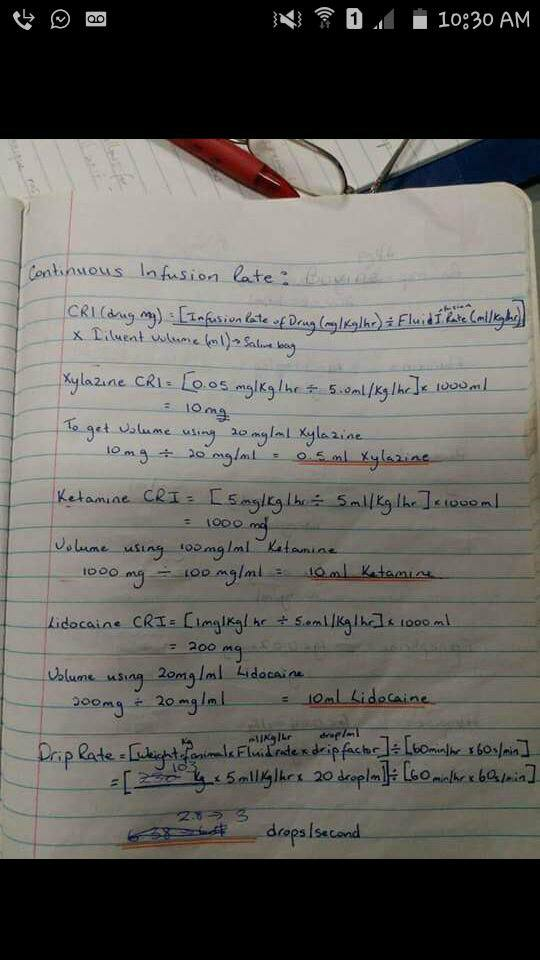 1 10:30 AM
Continuous Infusion Rate:
CRI (drug mg) = [Infusion Rate of Drug (mg/kg/hr) ÷ Fluid Infusion Rate (ml/kg/hr)]
x Diluent volume (ml) → Saline bag
Xylazine CRI = [0.05 mg/kg/hr ÷ 5.0ml/kg/hr] x 1000ml
= 10mg
To get volume using 20mg/ml Xylazine
10mg ÷ 20 mg/ml = 0.5 ml Xylazine
Ketamine CRI = [5mg/kg/hr ÷ 5ml/kg/hr] x 1000ml
= 1000 mg
Volume using 100mg/ml Ketamine
1000 mg ÷ 100 mg/ml = 10ml Ketamine
Lidocaine CRI = [1mg/kg/hr ÷ 5.0ml/kg/hr] x 1000 ml
= 200 mg
Volume using 20mg/ml Lidocaine
200mg ÷ 20 mg/ml = 10ml Lidocaine
kg ml/kg/hr drop/ml
Drip Rate = [Weight of animal x Fluid rate x drip factor] ÷ [60min/hr x 60s/min]
= [ kg x 5ml/kg/hr x 20 drop/ml] ÷ [60min/hr x 60s/min]
2.8 → 3
drops/second